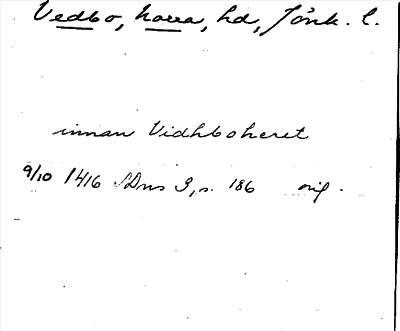 Vedbo, norra, hd, Jönk. l.
innan Vidhboheret
9/10 1416 SDns 3, s. 186 orig.